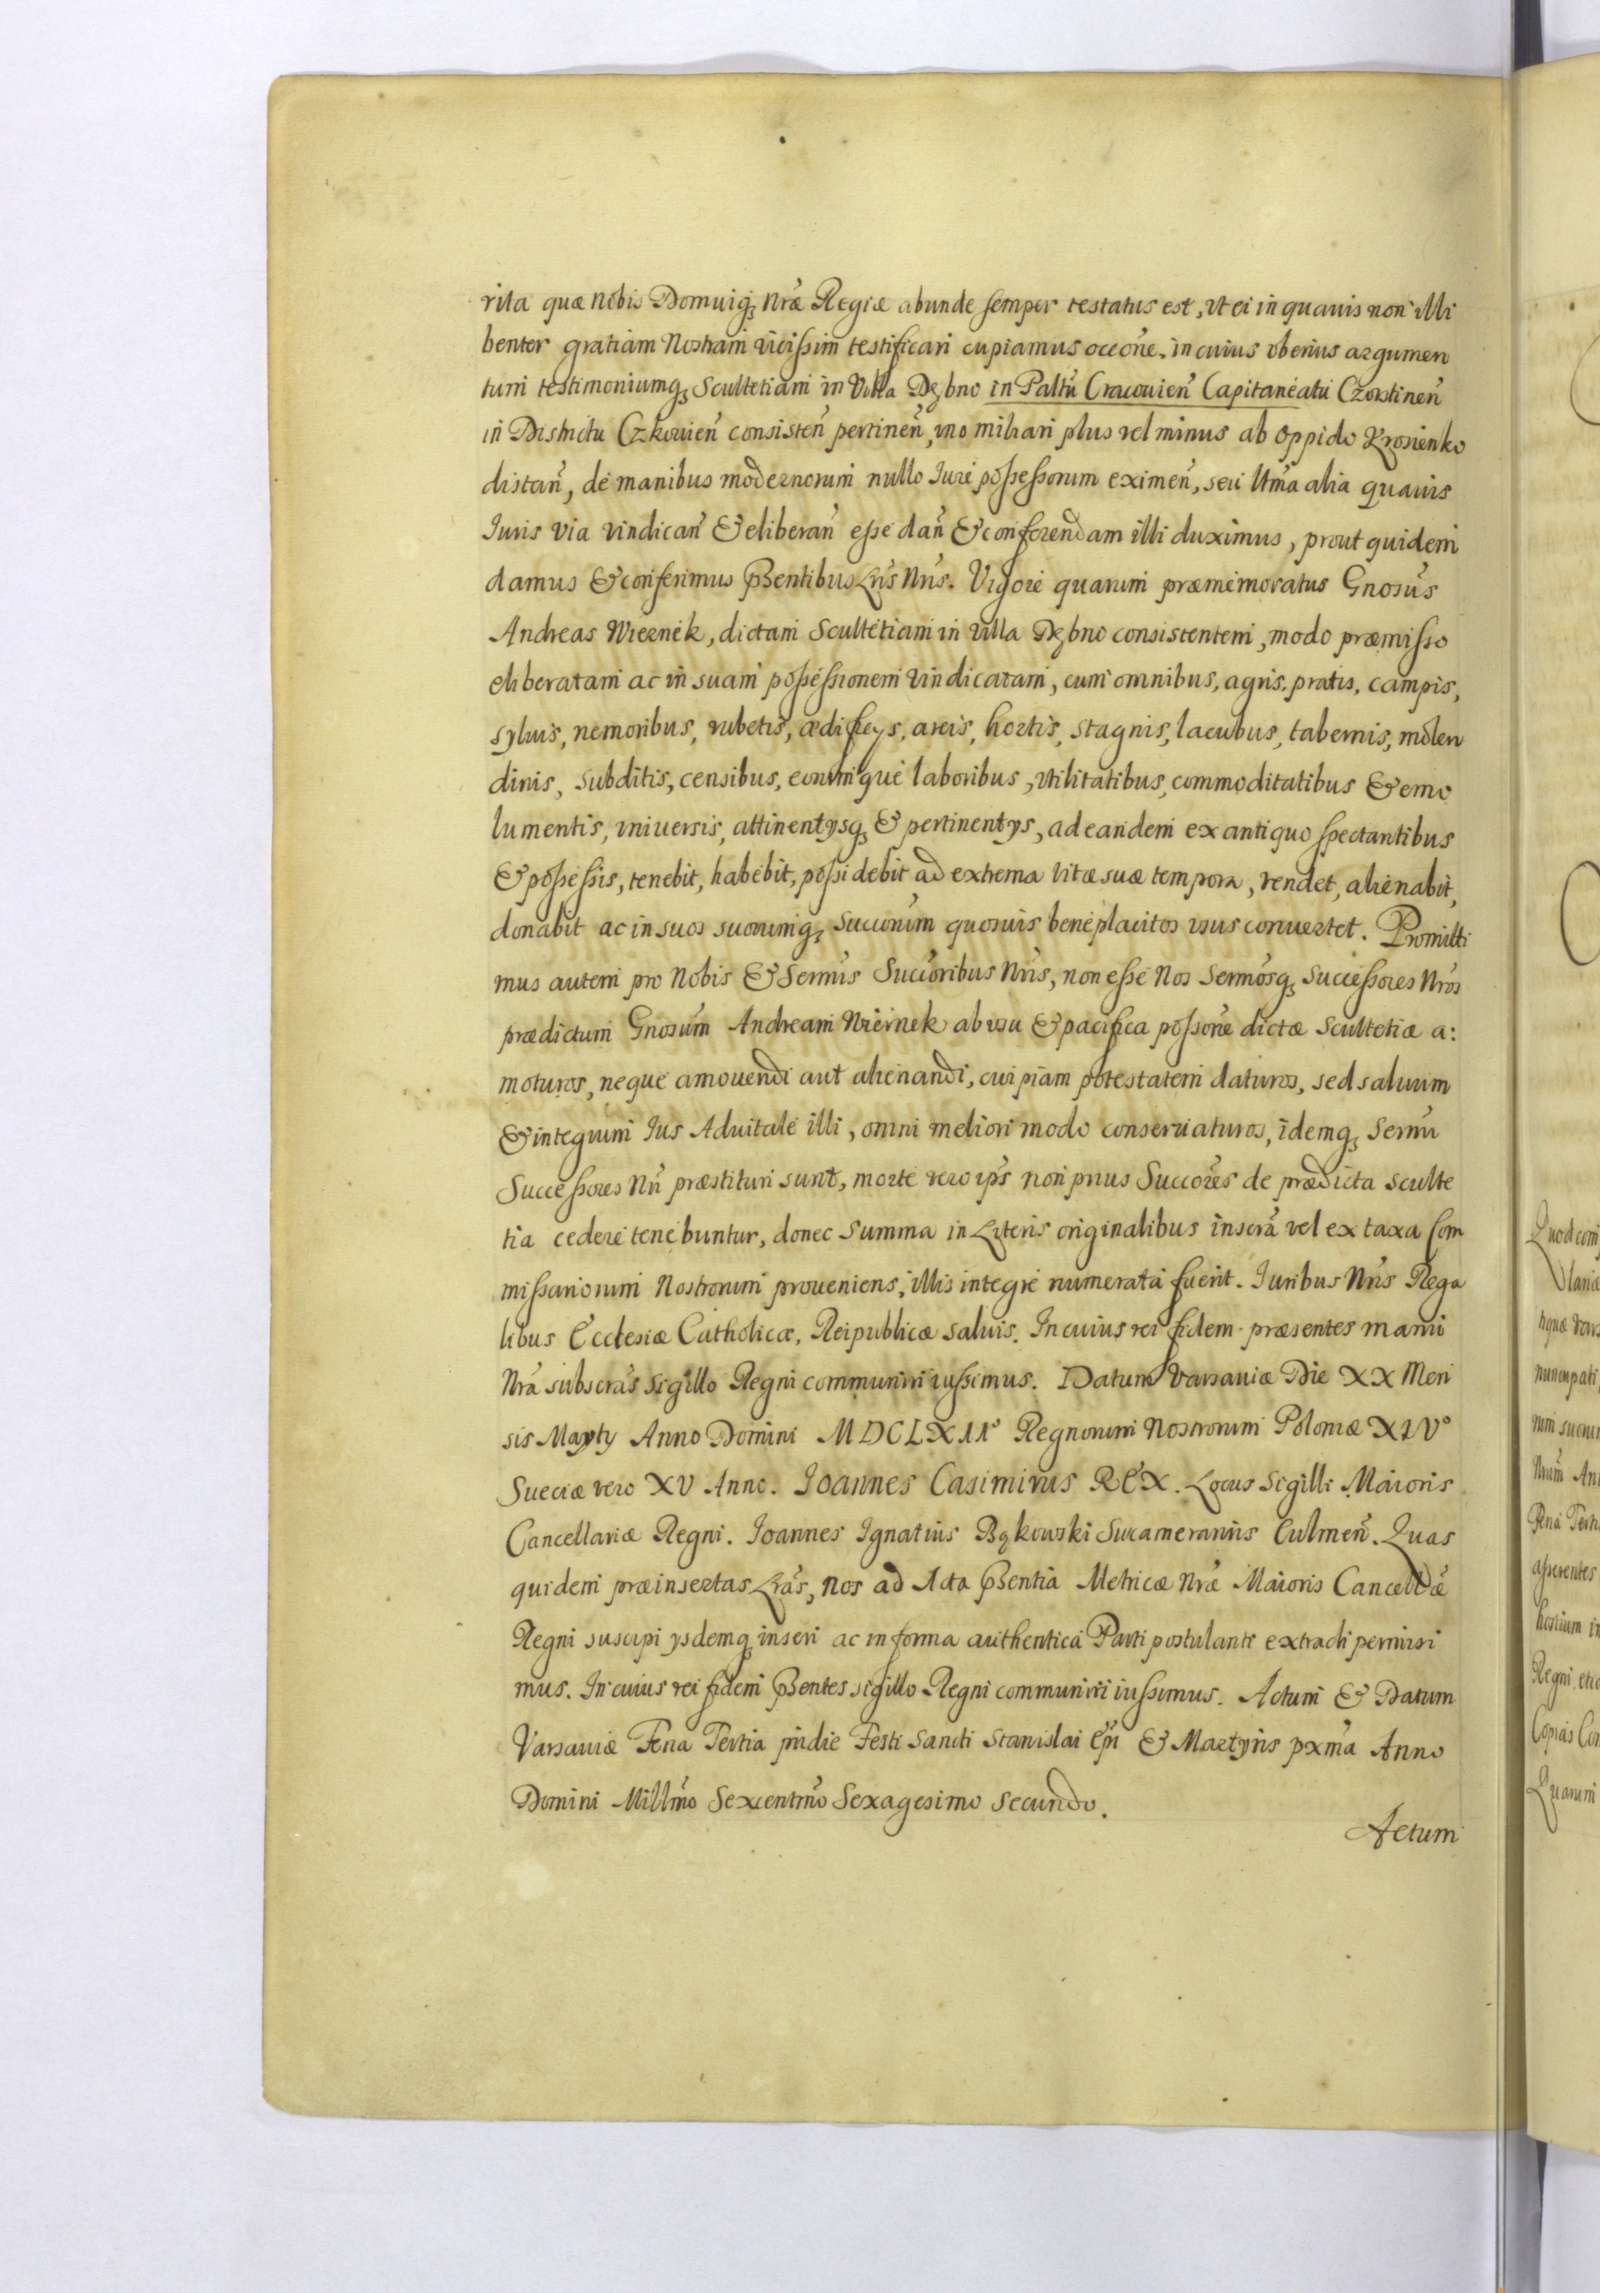 rita quæ Nobis Domuiq₃ Nrã Regiæ abunde semper testatus est, vt ei in quauis non illi
benter gratiam Nostram vicissim testificari cupiamus occõne. in cuius vberius argumen
tum testimoniumq₃ Scultetiam in Villa Dębno in Palttũ Cracouień Capitaneatu Czorstineń
in Districtu Czkouień consisteń pertineń, vno miliari plus vel minus ab Oppido Krosienko
distań, de manibus modernorum nullo Iure possessorum eximeń, seu Vtmã alia quauis
Iuris via vindicań & eliberań esse dań & conferendam illi duximus, prout quidem
damus & conferimus Pñtibus Lrĩs Nrĩs. Vigore quarum præmemoratus Gnosũs
Andreas Wiernek, dictam Scultetiam in Villa Dębno consistentem, modo præmisso
eliberatam ac in suam possessionem vindicatam, cum omnibus, agris, pratis, campis,
syluis, nemoribus, rubetis, ædificys, areis, hortis, stagnis, lacubus, tabernis, molen
dinis, subditis, censibus, eorumque laboribus, vtilitatibus, commoditatibus & emo
lumentis, vniuersis, attinentysq₃ & pertinentys, ad eandem ex antiquo spectantibus
& possessis, tenebit, habebit, possidebit ad extrema vitæ suæ tempora, vendet, alienabit,
donabit ac in suos suorumq₃ Succorũm quosuis beneplacitos vsus conuertet. Promitti
mus autem pro Nobis & Sermĩs Succoribus Nrĩs, non esse Nos Sermosq₃ Successores Nros
prædictum Gnosum Andream Wiernek ab vsu & pacifica possone dictæ Scultetiæ a:
moturos, neque amouendi aut alienandi, cuipiam potestatem daturos, sed saluum
& integrum Ius Aduitale illi, omni meliori modo conseruaturos, idemq₃ Sermi
Successores Nrĩ præstituri sunt, morte vero ips̃ non prius Successores de prædicta Sculte
tia cedere tenebuntur, donec Summa in Literis originalibus inscrã vel ex taxa Com
missariorum Nostrorum proueniens, illis integre numerata fuerit. Iuribus Nrĩs Rega
libus Ecclesiæ Catholicæ, Reipublicæ saluis. In cuius rei fidem præsentes manu
Nrã subscrãs Sigillo Regni communiri iussimus. Datum Varsauiæ Die XX Men
sis Mayty Anno Domini MDCLXII° Regnorum Nostrorum Poloniæ XIV°
Sueciæ vero XV Anno. Ioannes Casimirus REX. Locus Sigilli Maioris
Cancellariæ Regni. Ioannes Ignatius Bąkowski Succamerarius Culmeń. Quas
quidem præinsertas Lrãs, Nos ad Acta Pñtia Metricæ Nrã Maioris Cancellæ
Regni suscipi ysdemq₃ inseri ac in forma authentica Parti postulanti extradi permisi
mus. In cuius rei fidem Pñtes sigillo Regni communiri iussimus. Actum & Datum
Varsauiæ Feria Tertia pridie Festi Sancti Stanislai Epĩ & Martyris pxmã Anno
Domini Millmõ Sexcentmõ Sexagesimo Secundo.
Actum